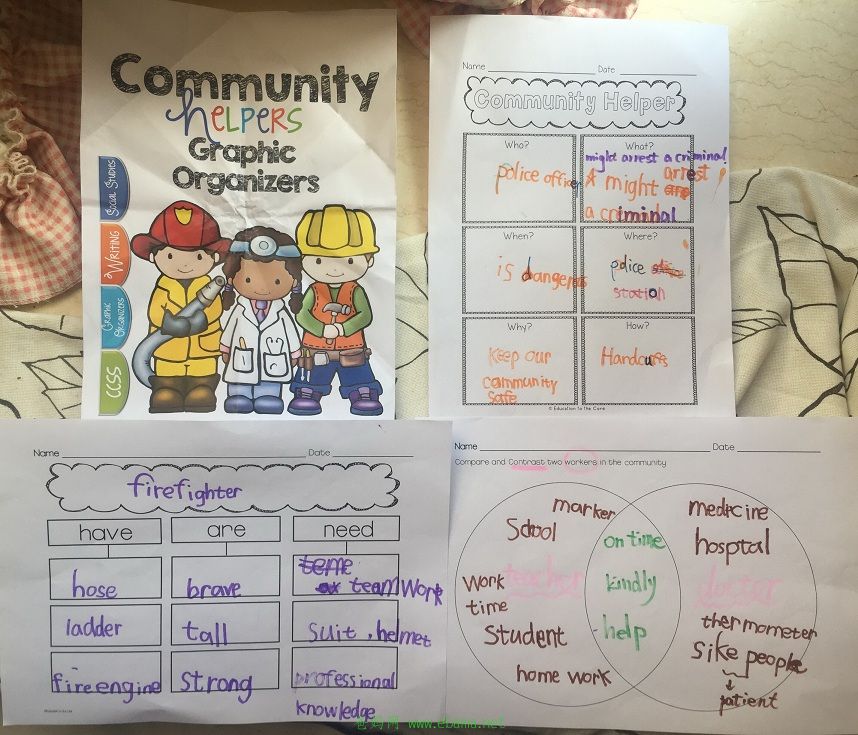 Community
HELPERS
Graphic
Organizers
Social Studies
WRITING
Graphic
Organizers
CCSS
Name Date
Community Helper
Who?
police officer
What?
might arrest a criminal
A might arrest
a criminal
When?
is dangerous
Where?
police
station
Why?
Keep our
community
safe
How?
Handcuffs
© Education to the Core
Name Date
firefighter
have are need
hose
ladder
fireengine
brave
tall
strong
teamwork
suit, helmet
professional
knowledge
Name Date
Compare and Contrast two workers in the community
marker
School
teacher
work
time
Student
home work
on time
kindly
help
medicine
hosptal
doctor
thermometer
sike people
patient
www.ebama.net